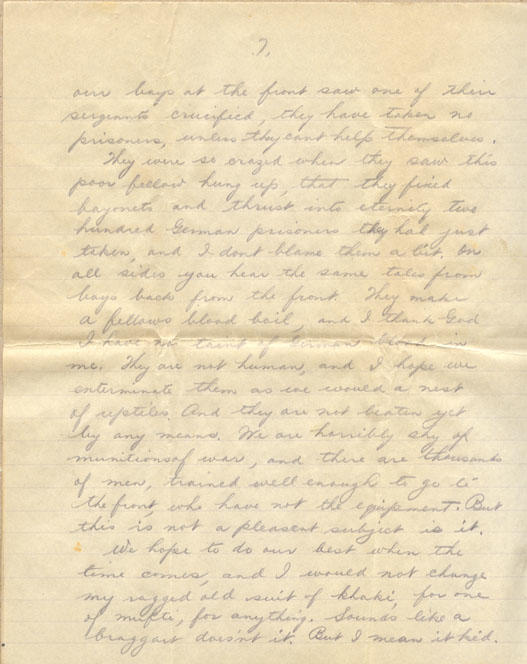 7.
our boys at the front saw one of their
sergeants crucified, they have taken no
prisoners, unless they cant help themselves.
They were so crazed when they saw this
poor fellow hung up, that they fixed
bayonets and thrust into eternity two
hundred German prisoners they had just
taken, and I dont blame them a bit. On
all sides you hear the same tales from
boys back from the front. They make
a fellows blood boil, and I thank God
I have no taint of German blood in
me. They are not human, and I hope we
exterminate them as we would a nest
of reptiles. And they are not beaten yet
by any means. We are horribly shy of
munitions of war, and there are thousands
of men, trained well enough to go to
the front, who have not the equipement. But
this is not a pleasent subject is it.
We hope to do our best when the
time comes, and I would not change
my ragged old suit of khaki, for one
of mufti, for anything. Sounds like a
braggart doesn't it. But I mean it kid.